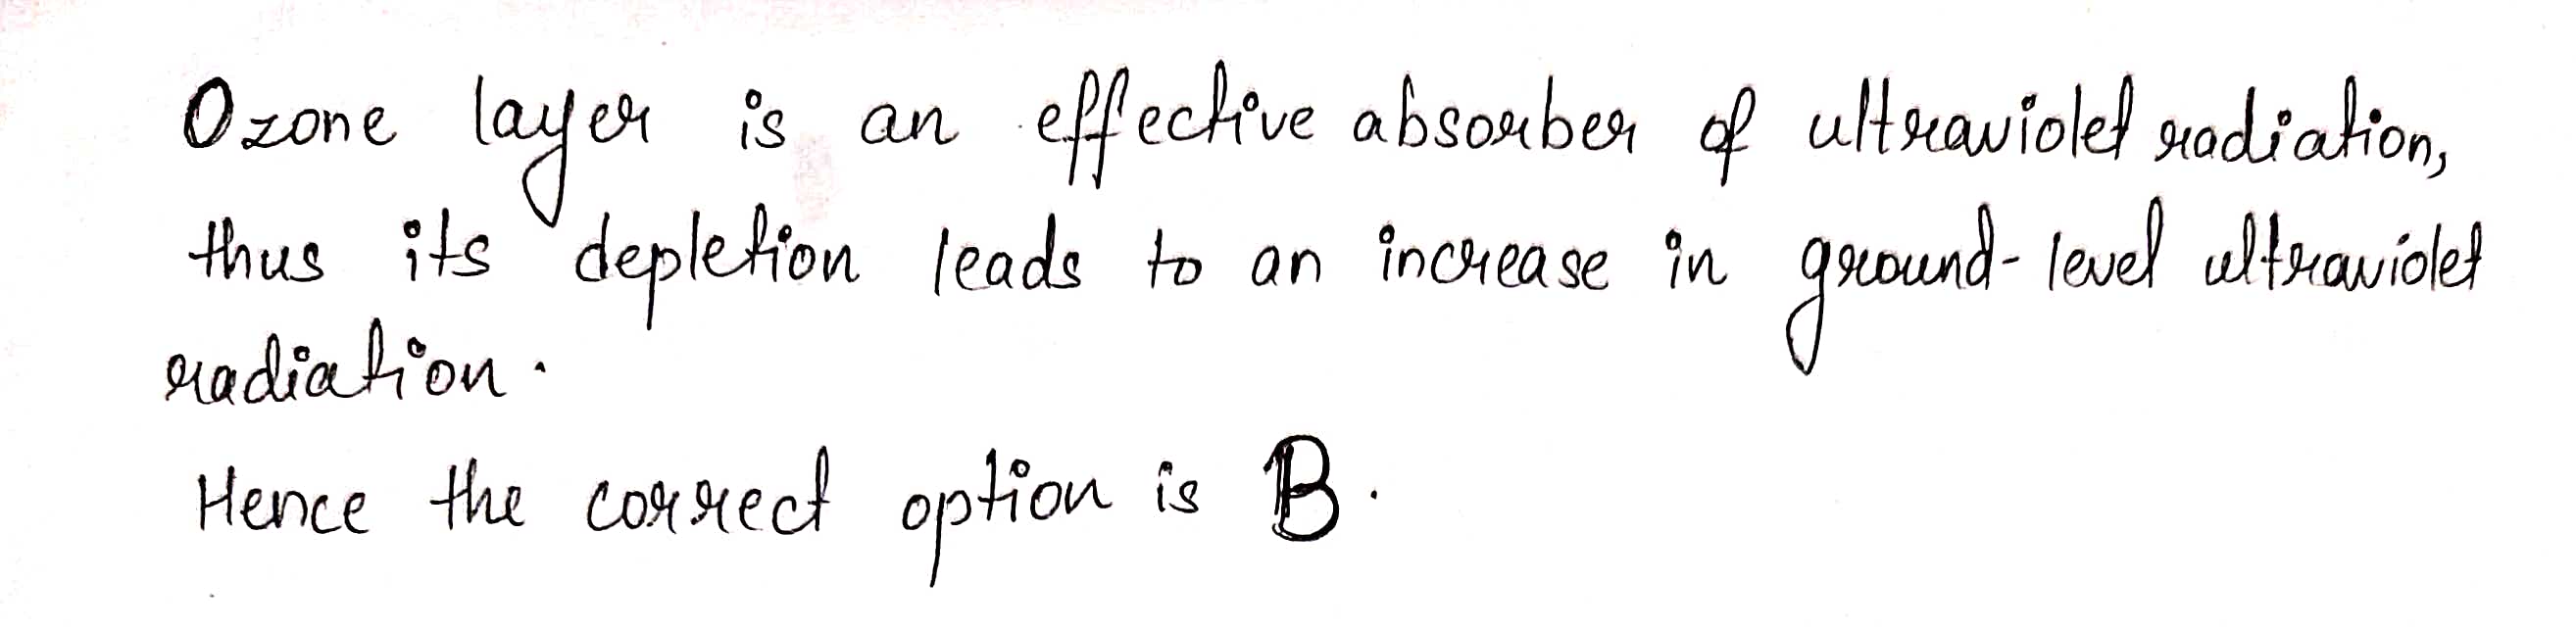 Ozone layer is an effective absorber of ultraviolet radiation,
thus its depletion leads to an increase in ground-level ultraviolet
radiation.
Hence the correct option is B.